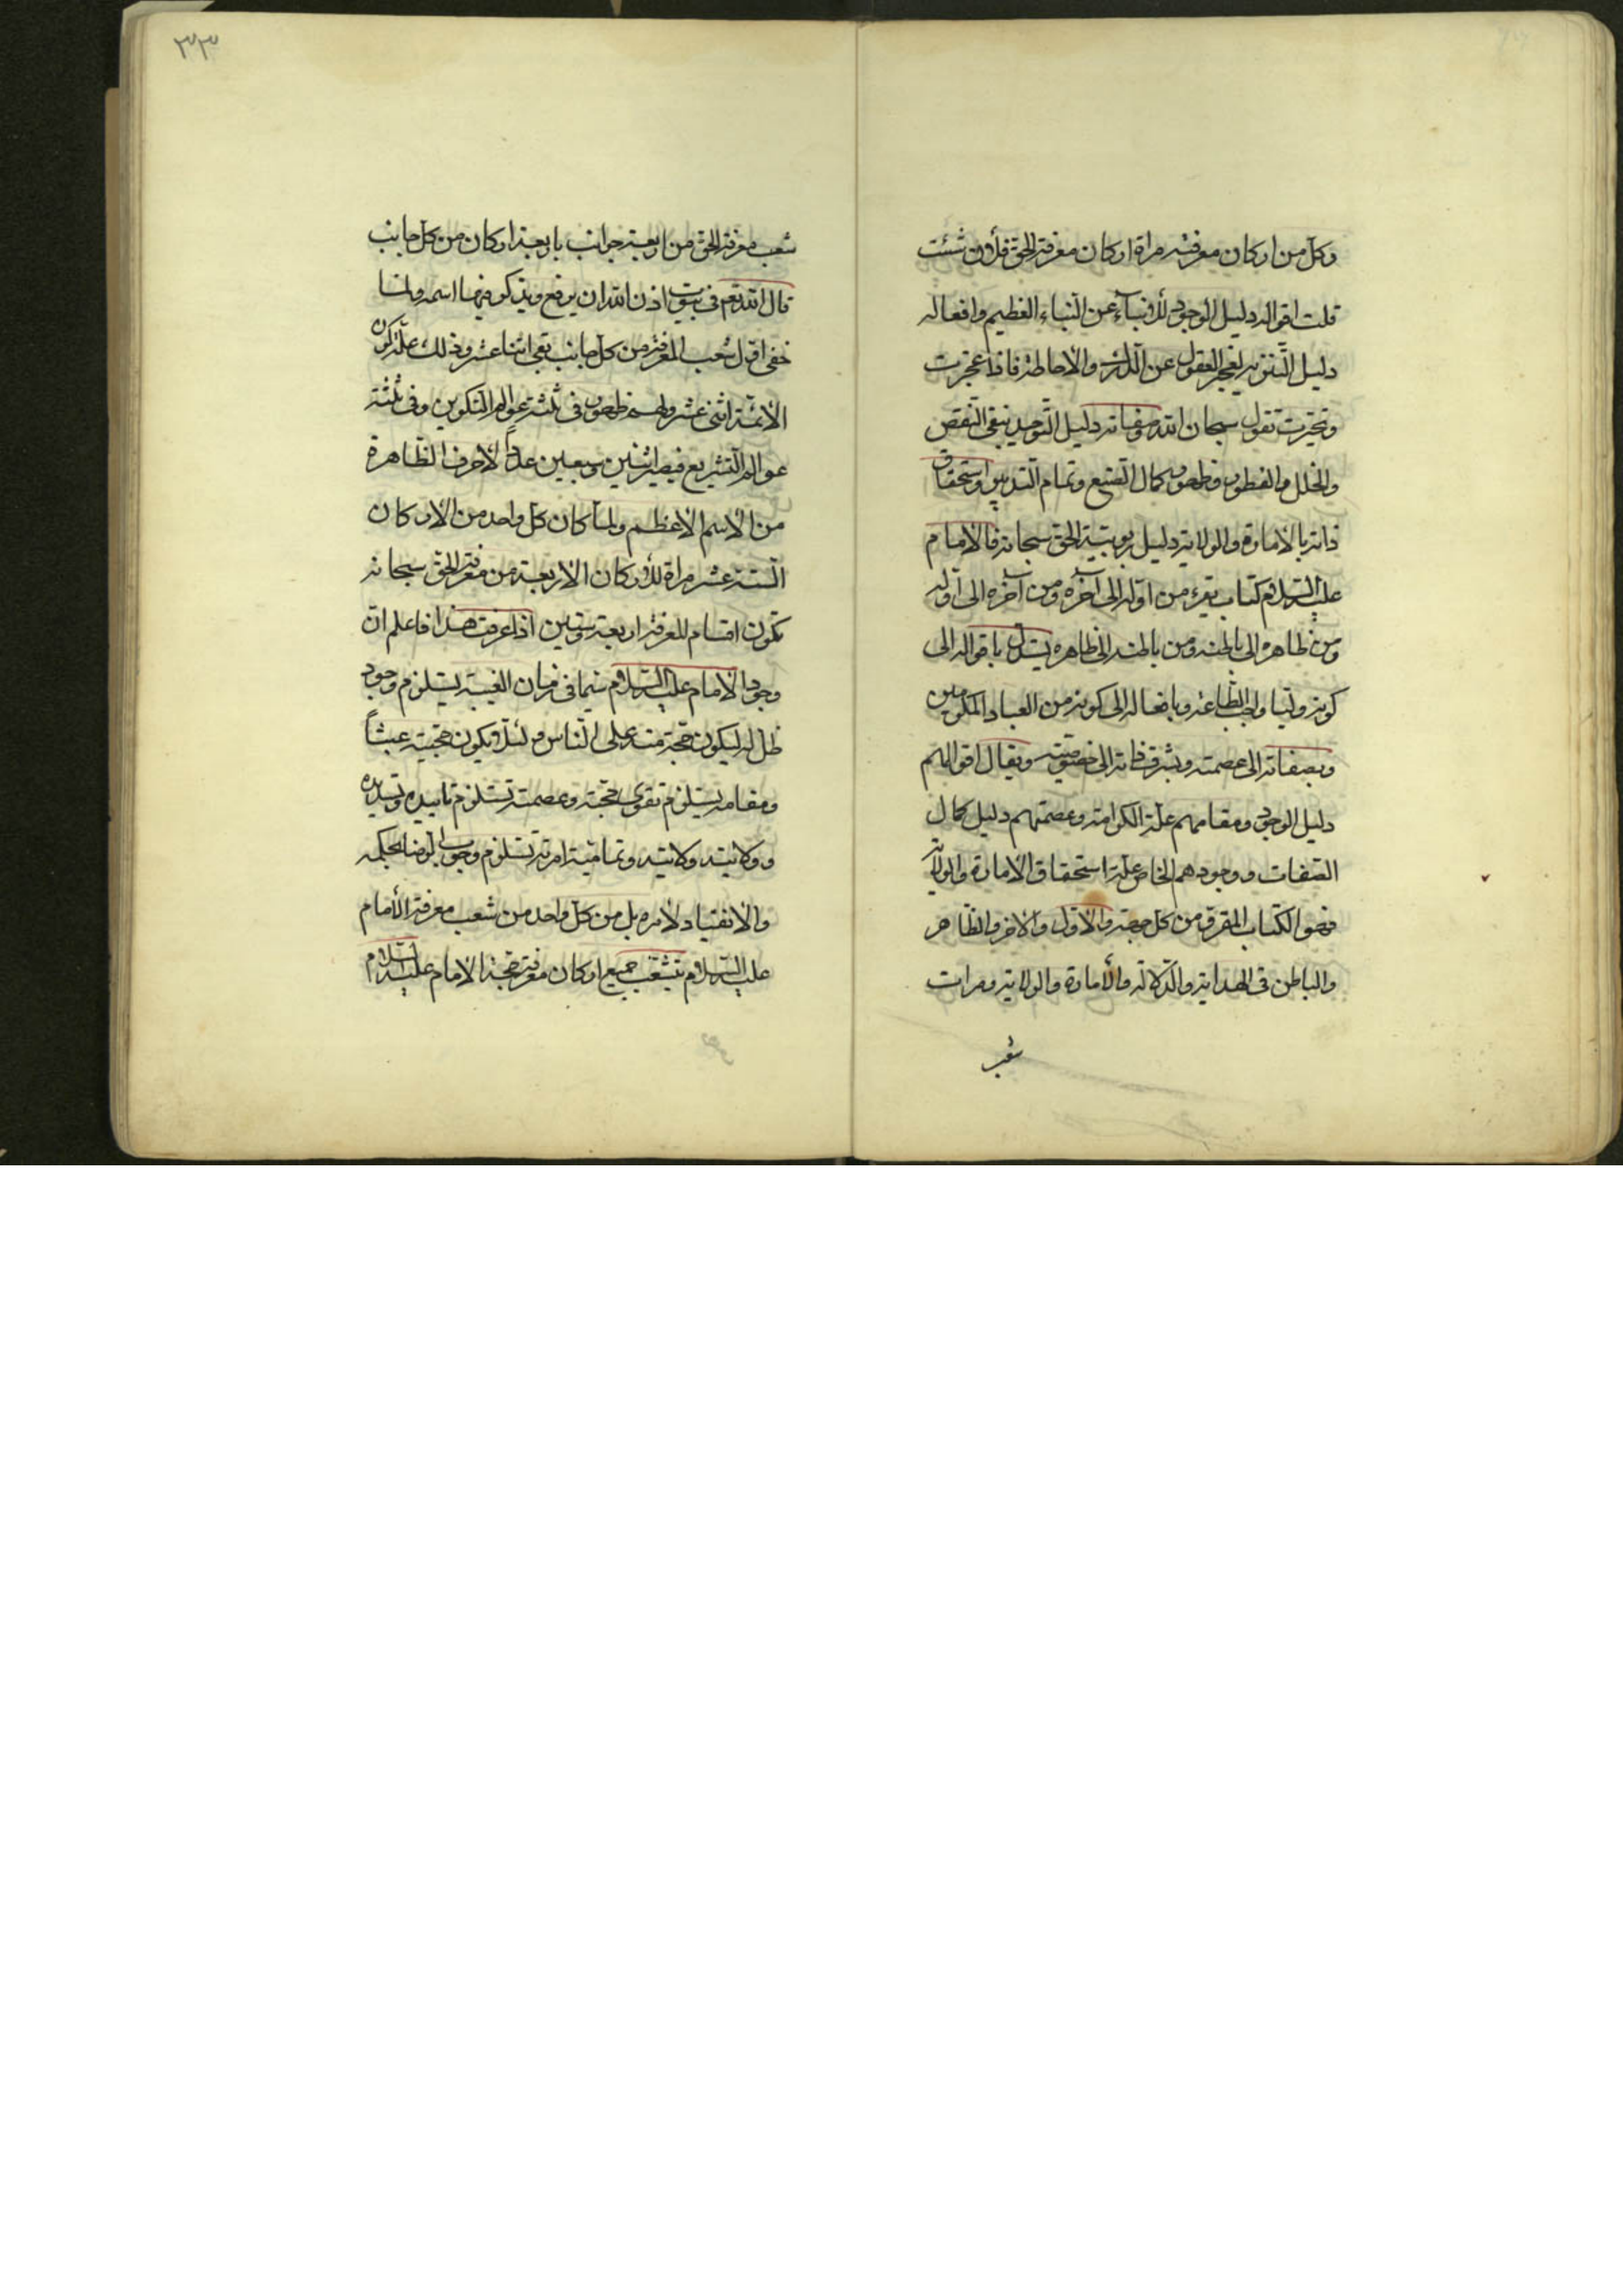 وكل من اركان معرفته مراة اركان معرفة الحق فلأن شئت
قلت اقواله دليل الوجود للأنباء عن النباء العظيم وافعاله
دليل التنزيه لعجز العقول عن الدرك والاحاطة فاذا عجزت
وتحيرت تقول سبحان الله وصفاته دليل التوحيد بنفى النقص
والخلل والفطور وظهور كمال الصنع وتمام التدبير واستحقاق
ذاته بالامارة والولاية دليل ربوبية الحق سبحانه فالامام
عليه السلام كتاب يقرء من اوله الى آخره ومن آخره الى اوله
ومن ظاهره الى باطنه ومن باطنه الى ظاهره يستدل باقواله الى
كونه وليا واجب الطاعة وبافعاله الى كونه من العباد المكرمين
وبصفاته الى عصمته وبشرف ذاته الى خصوصيته ويقال اقوالهم
دليل الوجود ومقامهم علة الكرامة وعصمتهم دليل كمال
الصفات ووجودهم الخاص علة استحقاق الامارة والولاية
فهو الكتاب المقرو من كل جهة والاول والاخر والظاهر
والباطن فى الهداية والدلالة والأمارة والولاية ومرات
شعب
٣٣
شعب معرفة الحق من اربعة جوانب باربعة اركان من كل جانب
قال الله تعم فى بيوت اذن الله ان يرفع ويذكر فيها اسمه ولما
خفى اول شعب المعرفة من كل جانب بقى اثنا عشر وذلك علة كون
الائمة اثنى عشر ولهم ظهور فى ثلثة عوالم التكوين وفى ثلثة
عوالم التشريع فيصير اثنين وسبعين عدد الاحرف الظاهرة
من الاسم الاعظم ولما كان كل واحد من الاركان
الستة عشر مراة للأركان الاربعة من معرفة الحق سبحانه
تكون اقسام المعرفة اربعة وستين اذا عرفت هذا فاعلم ان
وجود الامام عليه السلام سيما فى زمان الغيبة يستلزم وجود
ظل له ليكون حجة منه على الناس ولئلا يكون حجيته عبثاً
ومقامه يستلزم تقوى حجته وعصمته تستلزم تاييده وتسديده
وولايته ولايته وتمامية امرته تستلزم وجوب الرضا بحكمه
والانقياد لامره بل من كل واحد من شعب معرفة الأمام
عليه السلام يتشعب جميع اركان معرفة حجة الامام عليه السلام